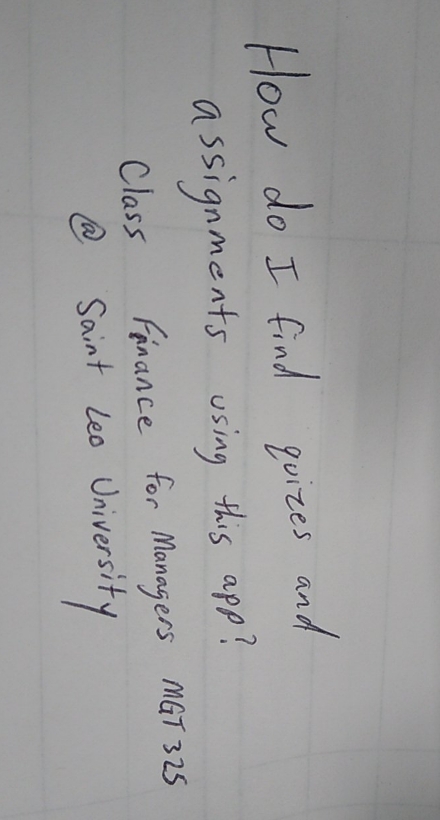 How do I find quizes and
assignments using this app?
Class Finance for Managers MGT 325
@ Saint Leo University